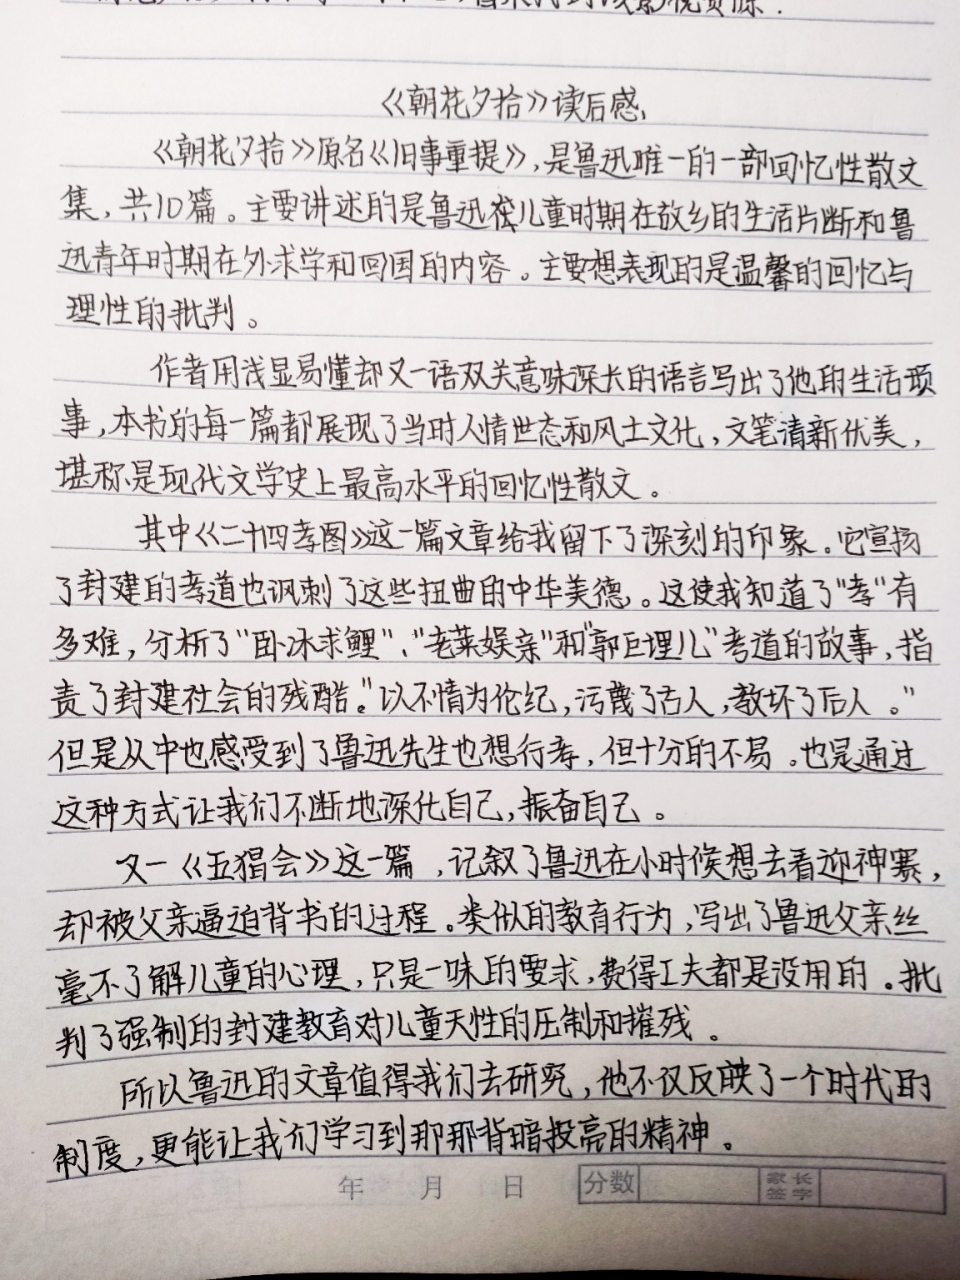 《朝花夕拾》读后感
《朝花夕拾》原名《旧事重提》,是鲁迅唯一的一部回忆性散文
集,共10篇。主要讲述的是鲁迅在儿童时期在故乡的生活片断和鲁
迅青年时期在外求学和回国的内容。主要想表现的是温馨的回忆与
理性的批判。
作者用浅显易懂却又一语双关意味深长的语言写出了他的生活琐
事,本书的每一篇都展现了当时人情世态和风土文化,文笔清新优美,
堪称是现代文学史上最高水平的回忆性散文。
其中《二十四孝图》这一篇文章给我留下了深刻的印象。它宣扬
了封建的孝道也讽刺了这些扭曲的中华美德。这使我知道了"孝"有
多难,分析了"卧冰求鲤"、"老莱娱亲"和"郭巨埋儿"孝道的故事,指
责了封建社会的残酷。"以不情为伦纪,污蔑了古人,教坏了后人。"
但是从中也感受到了鲁迅先生也想行孝,但十分的不易。也是通过
这种方式让我们不断地深化自己,振奋自己。
又一《五猖会》这一篇,记叙了鲁迅在小时候想去看迎神赛,
却被父亲逼迫背书的过程。类似的教育行为,写出了鲁迅父亲丝
毫不了解儿童的心理,只是一味的要求,费得工夫都是没用的。批
判了强制的封建教育对儿童天性的压制和摧残。
所以鲁迅的文章值得我们去研究,他不仅反映了一个时代的
制度,更能让我们学习到那那背暗投亮的精神。
年 月 日 分数 家长签字